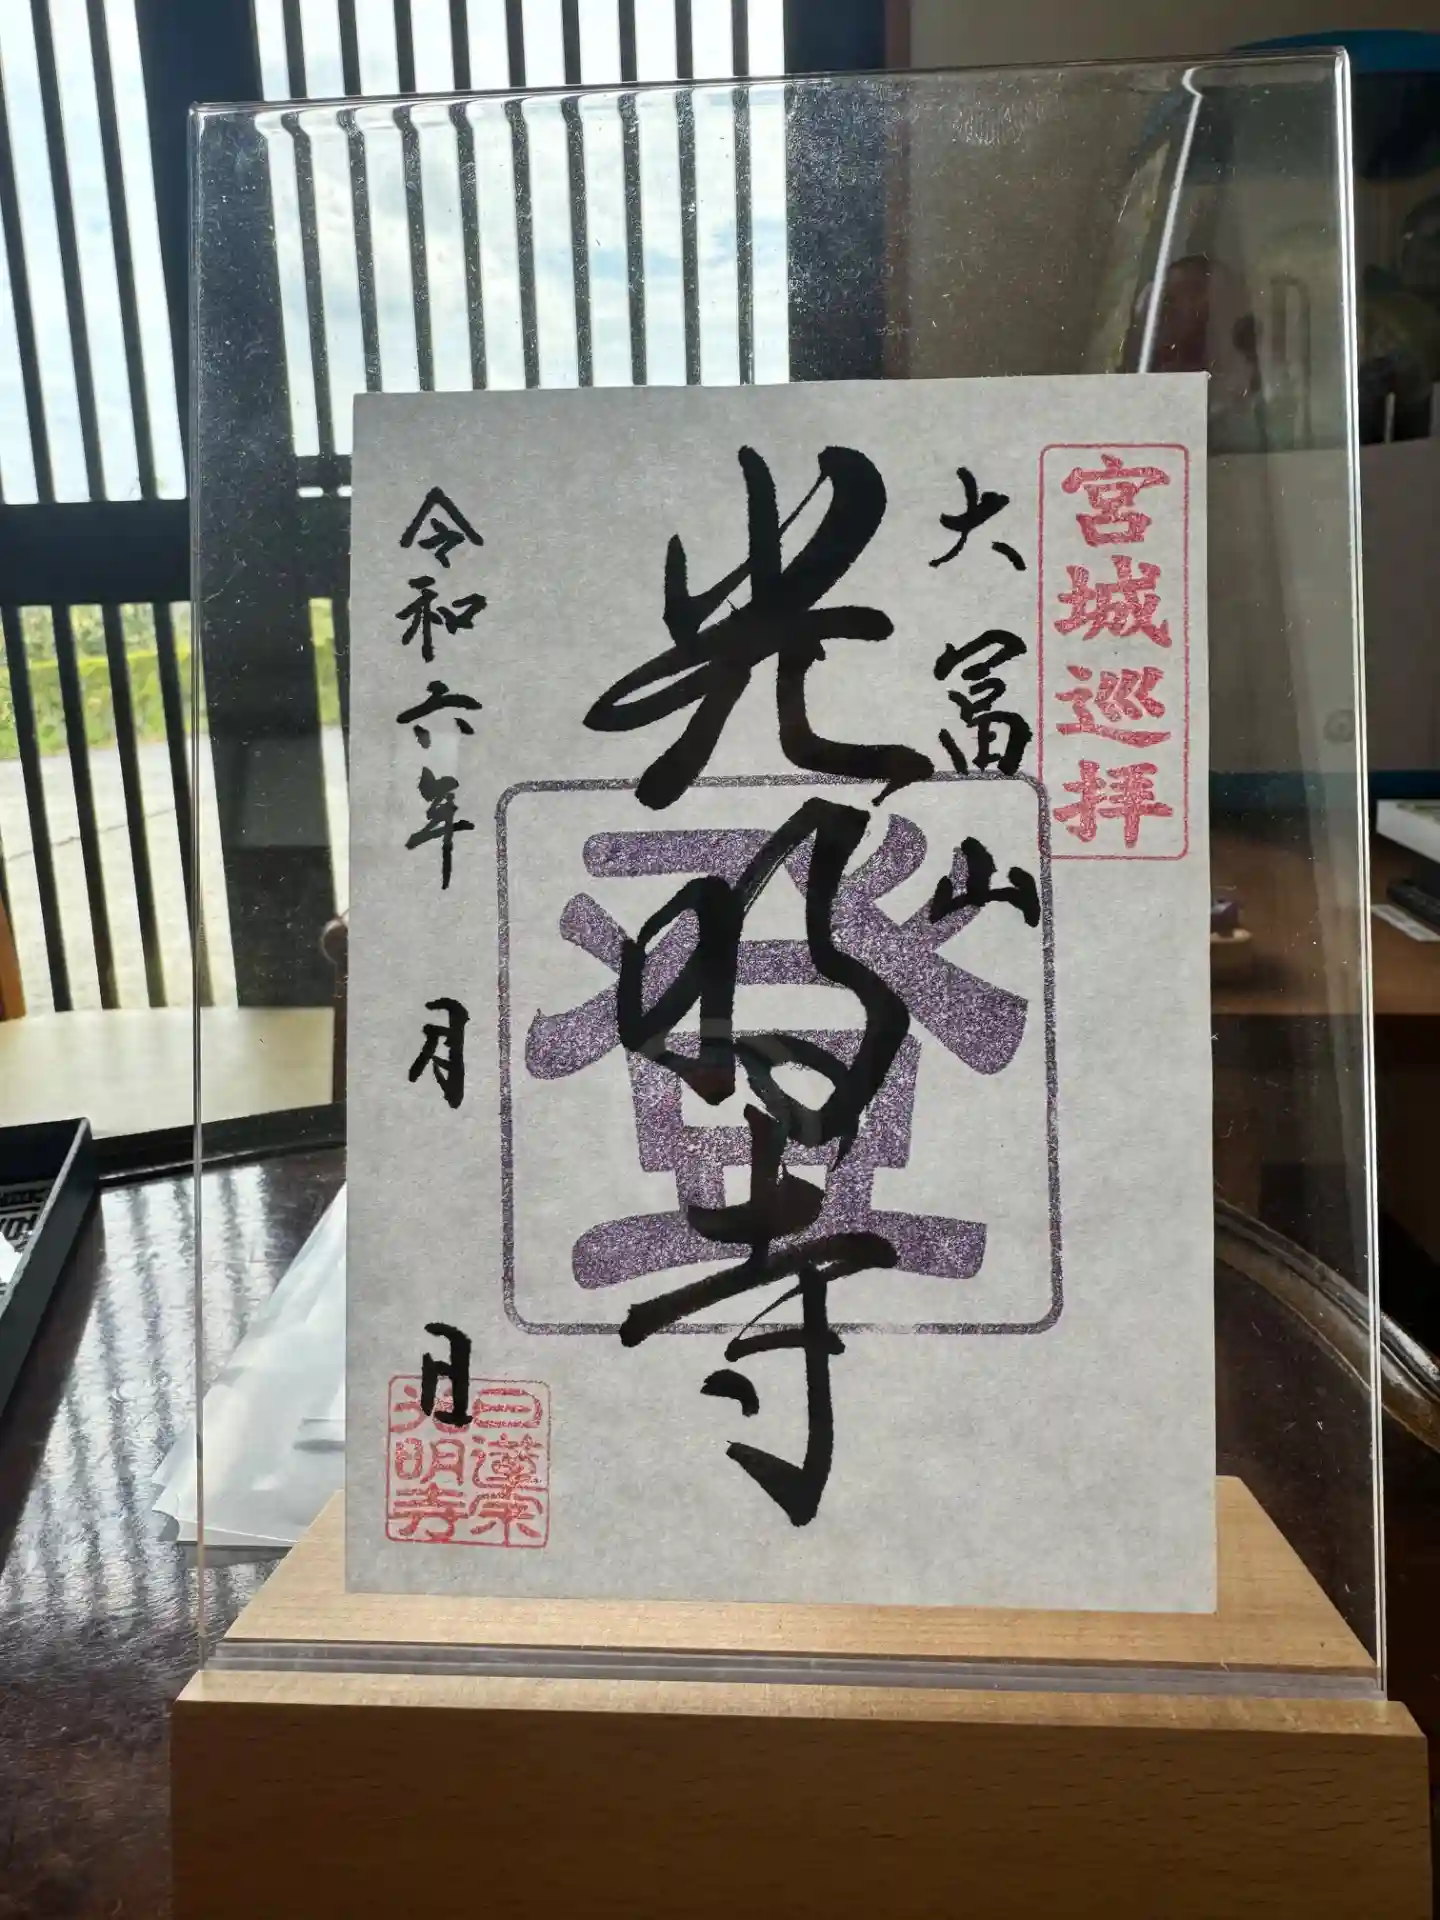 宮城巡拝
大冨山
光明寺
登
令和六年 月 日
日蓮宗
光明寺